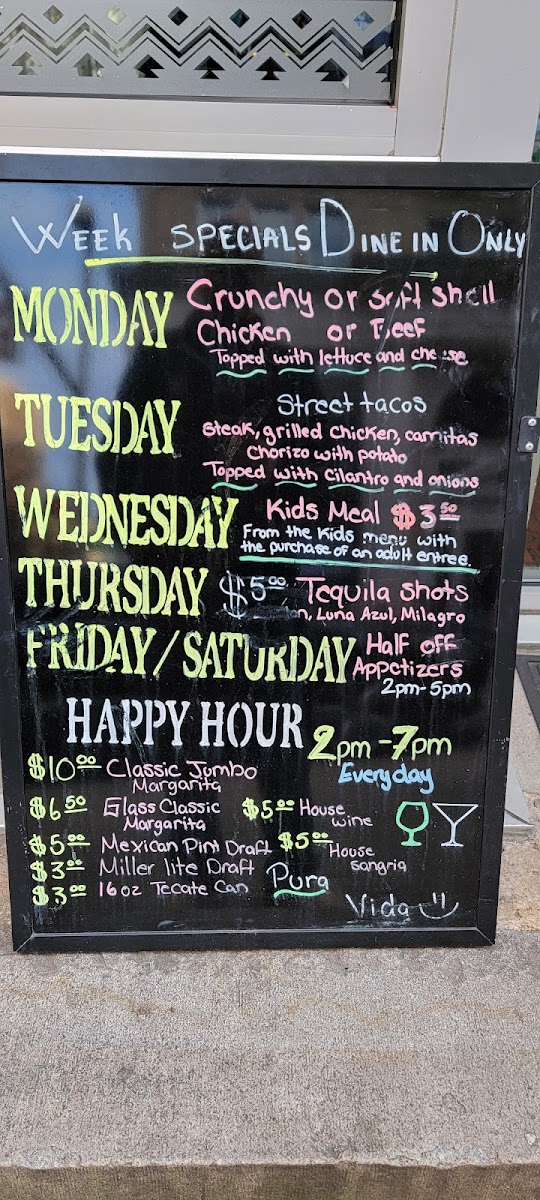 WEEK SPECIALS DINE IN ONLY
MONDAY
Crunchy or soft shell
Chicken or Beef
Topped with lettuce and cheese
TUESDAY
Street tacos
Steak, grilled Chicken, carnitas
Chorizo with potato
Topped with Cilantro and onions
WEDNESDAY
Kids Meal $3.50
From the Kids menu with
the purchase of an adult entree.
THURSDAY
$5.00 Tequila Shots
Luna Azul, Milagro
FRIDAY/SATURDAY
Half off
Appetizers
2pm-5pm
HAPPY HOUR
2pm-7pm
Everyday
$10.00 Classic Jumbo
Margarita
$6.50 Glass Classic
Margarita
$5.00 House
wine
$5.00 Mexican Pint Draft
$5.00 House
sangria
$3.00 Miller lite Draft
$3.00 16 oz Tecate Can
Pura
Vida